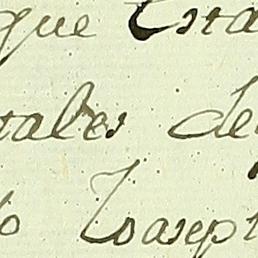 que Esta
tales de
o Joseph